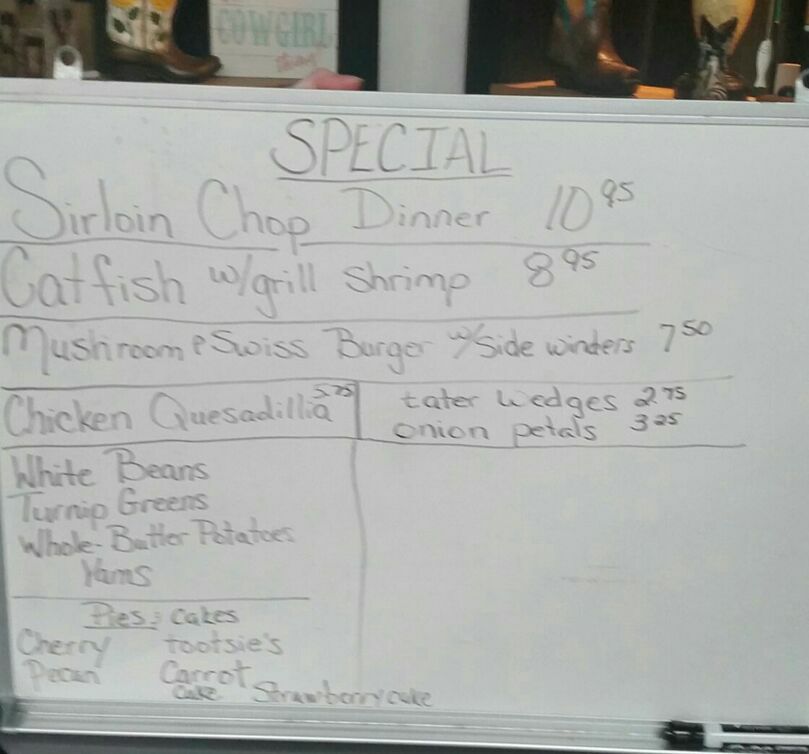 COWGIRL
SPECIAL
Sirloin Chop Dinner 10 95
Catfish w/grill Shrimp 8 95
Mushroom & Swiss Burger w/Side winders 7 50
Chicken Quesadillia 5.75
tater wedges 2 75
onion petals 3 25
White Beans
Turnip Greens
Whole-Butter Potatoes
Yams
Pies: cakes
Cherry tootsie's
Pecan Carrot
cake Strawberry cake